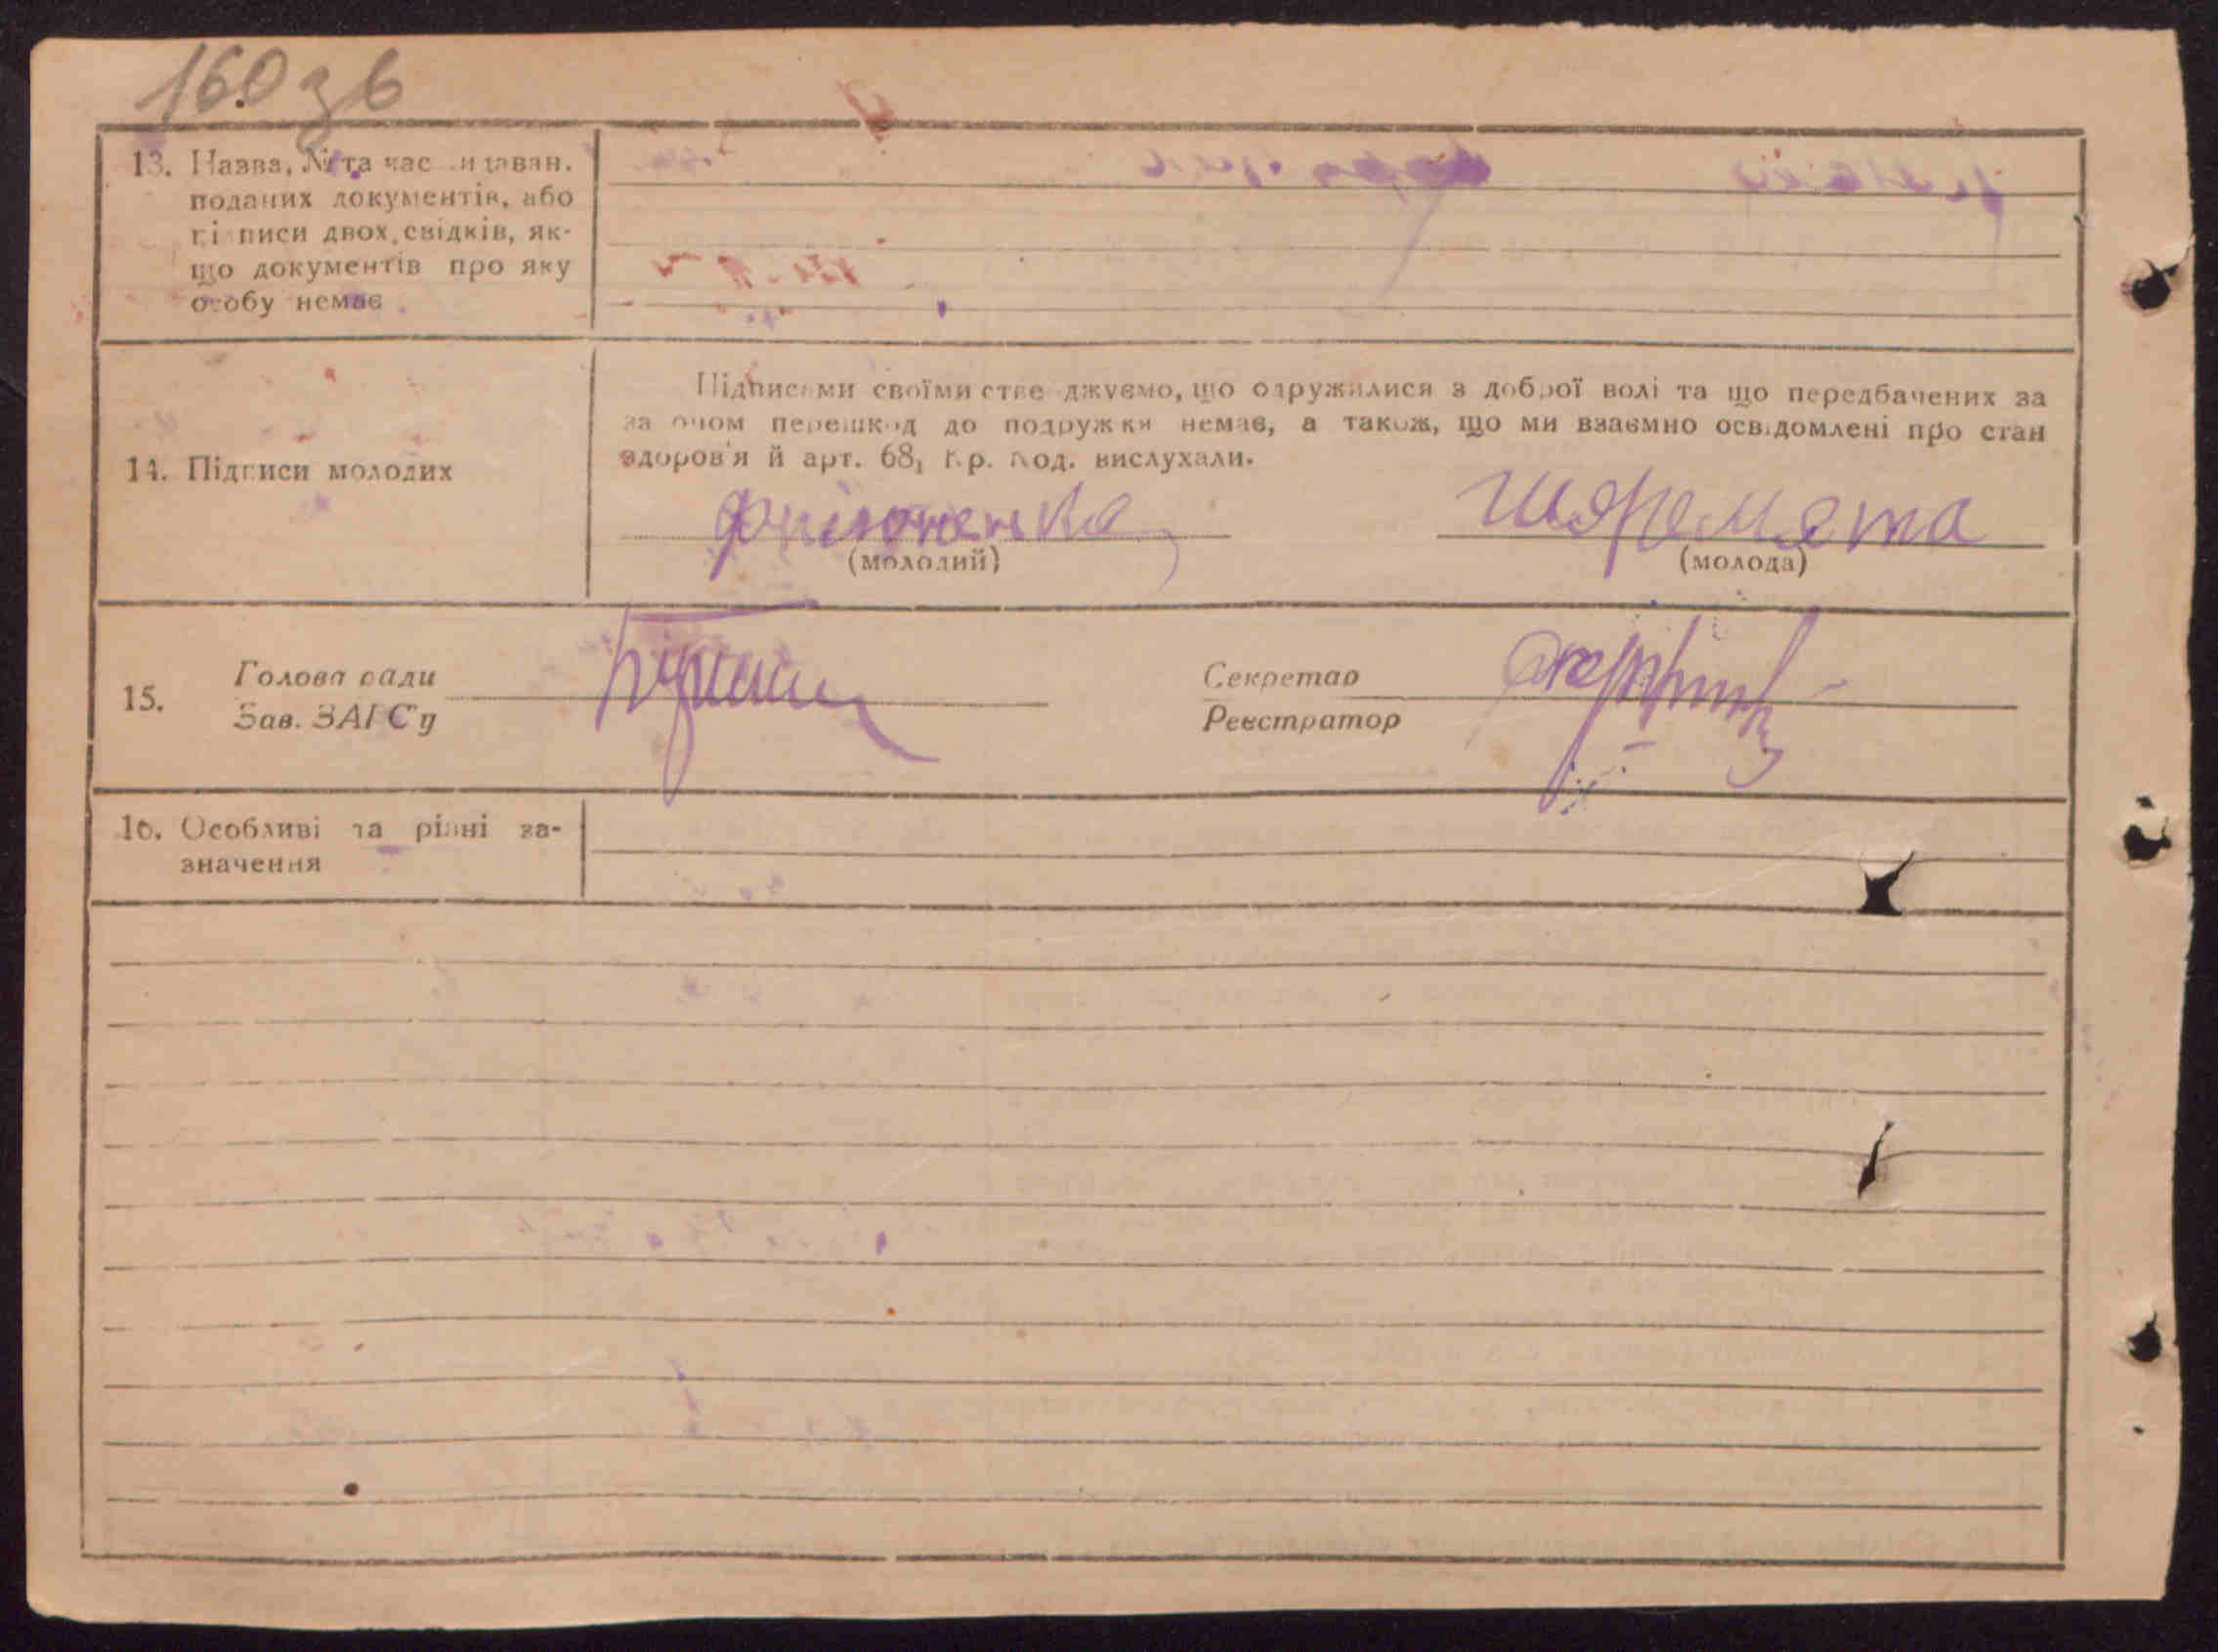 160 зв
13. Назва, № та час видаван.
поданих документів, або
підписи двох свідків, як-
що документів про яку
особу немає
Підписами своїми стверджуємо, що одружилися з доброї волі та що передбачених за
законом перешкод до подружжя немає, а також, що ми взаємно освідомлені про стан
здоров'я й арт. 68, Кр. Код. вислухали.
14. Підписи молодих
Шеремета
(молодий) (молода)
15. Голова ради Секретар
Зав. ЗАГСу Реєстратор
16. Особливі та різні за-
значення